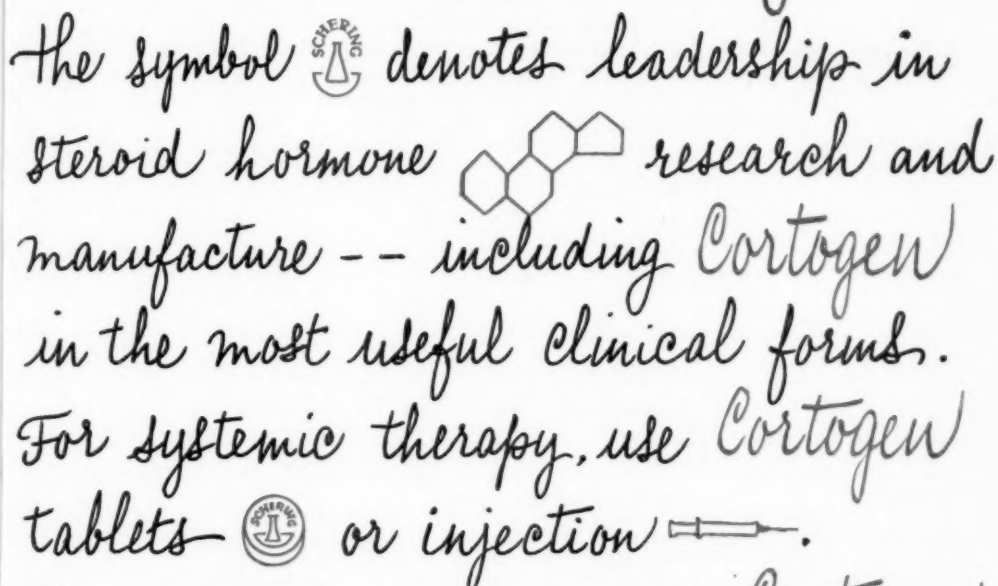 the symbol SCHERING denotes leadership in
steroid hormone research and
manufacture -- including Cortogen
in the most useful clinical forms.
For systemic therapy, use Cortogen
tablets SCHERING or injection .